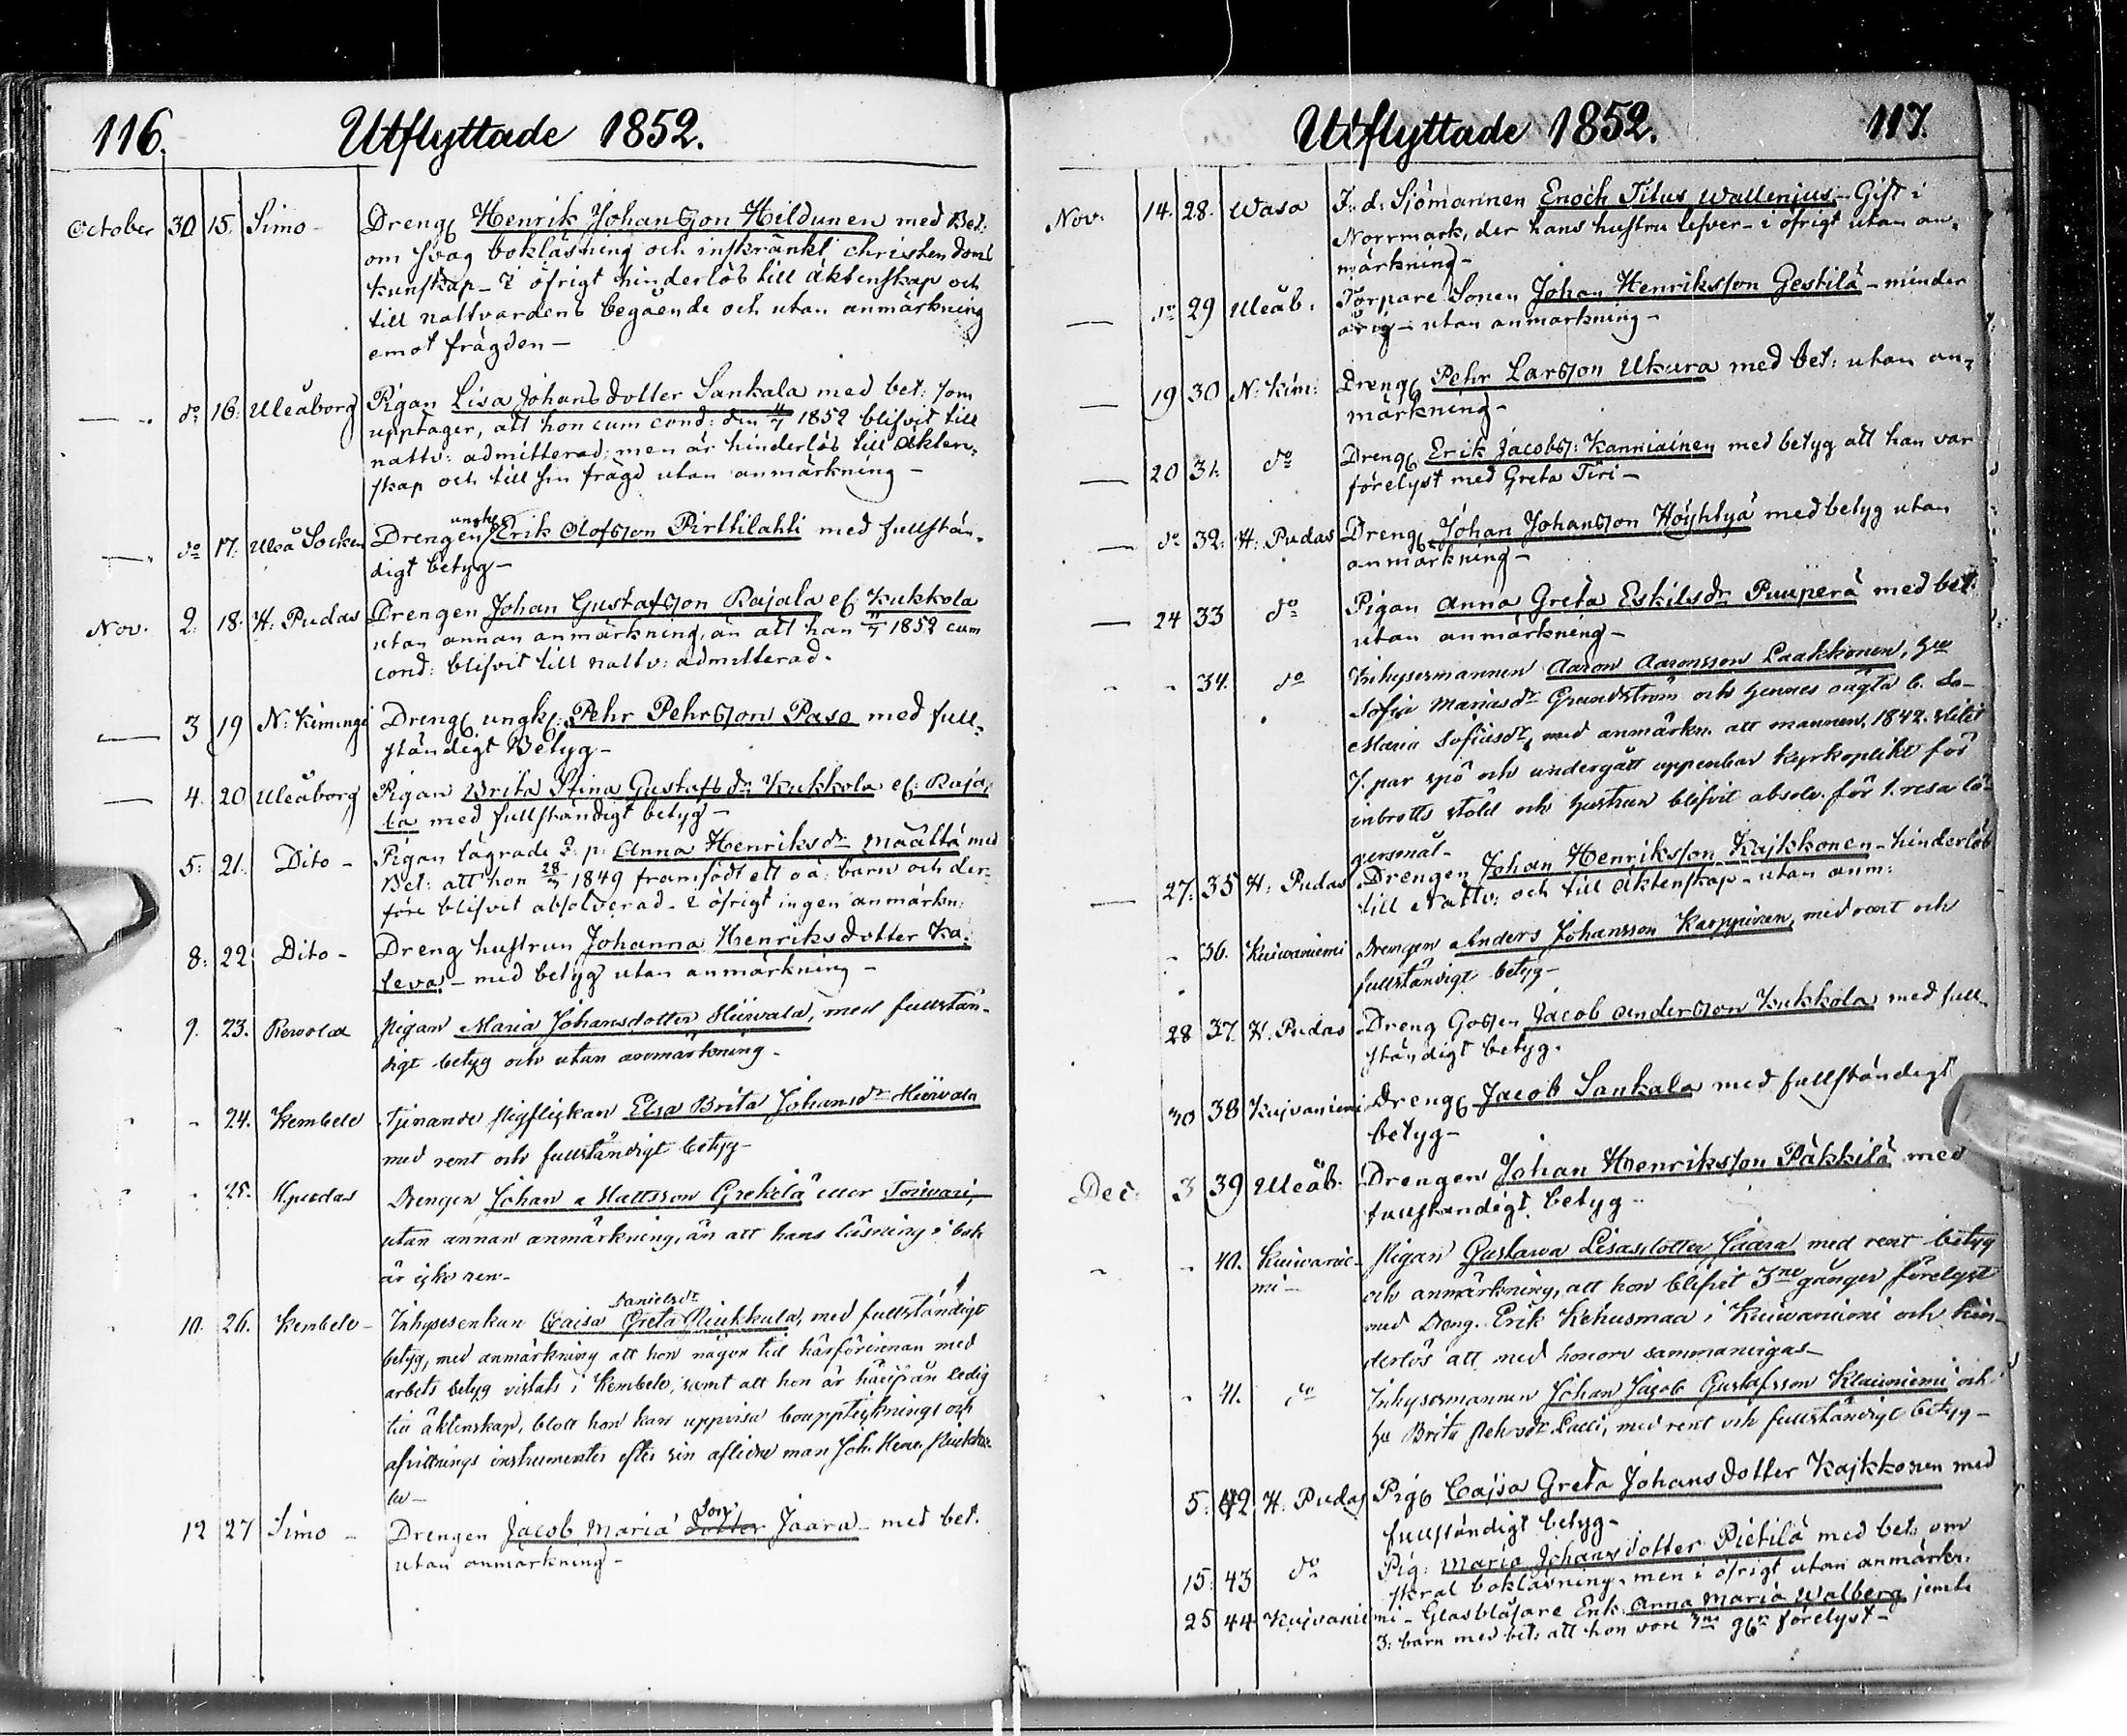 116. Utflyttade 1852.
October 30 15. Simo - Dreng Henrik Johansson Hildunen med Bet:
om svag bokläsning och inskränkt christendoms
kunskap - i öfrigt hinderlös till äktenskap och
till nattvardens begående och utan anmärkning
emot frägden -
— d:o 16. Uleåborg Pigan Lisa Johansdotter Sankala med bet: som
upptager, att hon cum cond: den 11/7 1852 blifvit till
nattv: admitterad, men är hinderlös till äkten-
skap och till sin frägd utan anmärkning -
— d:o 17. Uleå Socken Drengen ungk. Erik Olofsson Pirttilahti med fullstän-
digt betyg -
Nov. 2. 18. H. Pudas Drengen Johan Gustafsson Rajala el. Kukkola
utan annan anmärkning, än att han 11/7 1852 cum
cond: blifvit till nattv: admitterad.
— 3 19 N: Kimingi Dreng ungk: Pehr Pehrsson Paso med full-
ständigt Betyg -
— 4. 20 Uleåborg Pigan Brita Stina Gustafsdr Kukkola el: Raja-
la med fullständigt betyg -
5: 21. Dito - Pigan lägrade 2: p: Anna Henriksdr Määttä med
Bet: att hon 28/7 1849 framfödt ett oä: barn och der-
före blifvit absolverad - i öfrigt ingen anmärkn:
8: 22. Dito - Dreng hustrun Johanna Henriksdotter Ka-
leva - med betyg utan anmärkning -
9. 23. Revola Pigan Maria Johansdotter Hiirvala, med fullstän-
digt betyg och utan anmärkning -
- 24. Kembele tjenande pigflickan Elsa Brita Johansdr Hiirvala
med rent och fullständigt betyg -
- 25. Hpudas Drengen Johan Mattsson Grekelä eller Toivari,
utan annan anmärkning, än att hans läsning i bok
är icke ren -
10. 26. Kembele - Inhysesenkan Caisa Greta Danielsdr Niukkula, med fullständigt
betyg, med anmärkning att hon någon tid härförinnan med
arbets betyg vistats i Kembele, samt att hon är härifrån ledig
till äktenskap, blott hon kan uppvisa bouppteknings och
afvittrings instrumenter efter sin aflidne man Joh. Henr. Niukku-
la -
12 27 Simo - Drengen Jacob Maria dotter Son Jaara - med bet.
utan anmärkning -
Utflyttade 1852. 117.
Nov. 14. 28. Wasa F. d. Sjömannen Enoch Titus Wallenius - Gift i
Norrmark, der hans hustru lefver - i öfrigt utan an-
märkning -
— d:o 29 Uleåb. Torpare Sonen Johan Henriksson Gestilä - minder
årig - utan anmärkning -
— 19 30 N: Kim: Dreng Pehr Larsson Ukura med bet: utan an-
märkning -
— 20 31. d:o Dreng Erik Jacobss: Kanniainen med betyg att han var
förelyst med Greta Tiri -
— d:o 32. H: Pudas Dreng Johan Johansson Höyhtyä med betyg utan
anmärkning -
— 24 33 d:o Pigan Anna Greta Eskilsdr Puuperä med bet:
utan anmärkning -
- - 34. d:o Inhysesmannen Aaron Aaronsson Laakkonen, Hu
Sofia Mariasdr Grundström och hennes oägta b. do-
Maria Sofiasdr, med anmärkn. att mannen, 1842. slitit
7. par spö och undergått uppenbar kyrkoplikt för
inbrotts stöld och hustrun blifvit absolv. för 1. resa lö-
gersmål -
— 27: 35 H: Pudas Drengen Johan Henriksson Kajkkonen - hinderlös
till Nattv: och till äktenskap - utan anm:
- 36. Kuivaniemi Drengen Anders Johansson Karppinen, med rent och
fullständigt betyg -
28 37. H. Pudas - Dreng Gossen Jacob Andersson Kukkola med full-
ständigt betyg.
30 38 Kujvaniemi Dreng Jacob Sankala med fullständigt
betyg -
Dec: 3 39 Uleåb: Drengen Johan Henriksson Päkkilä med
fullständigt betyg -
- - 40. Kuivanie-
mi - Pigan Gustawa Lisasdotter Jaara med rent betyg
och anmärkning, att hon blifvit 3ne gånger förelyst
med Dreng. Erik Kehusmaa i Kuivaniemi och hin-
derlös att med honom sammanvigas -
- - 41. d:o Inhysesmannen Johan Jacob Gustafsson Klaivuniemi och
Hu Brita Pehrsdr Lalli, med rent och fullständigt betyg -
5: 42 H: Pudas Pig Cajsa Greta Johansdotter Kajkkonen med
fullständigt betyg -
15: 43 d:o Pig: Maria Johansdotter Pietilä med bet: om
skral bokläsning, men i öfrigt utan anmärkn.
25 44 Kujvaniemi - Glasblåsare Enk. Anna Maria Walberg jemte
3: barn med bet: att hon vore 3ne ggr förelyst -